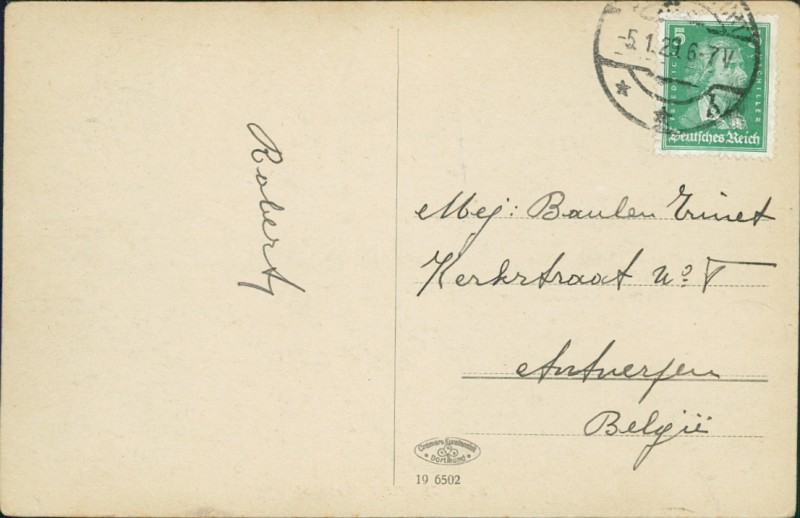 Robert
-5.1.29.6-7V.
5
FRIEDRICH
SCHILLER
Deutsches Reich
Mej: Baulen Trinet
Kerkstraat No. 5
Antwerpen
België
Cramers Kunstanstalt
Dortmund
19 6502